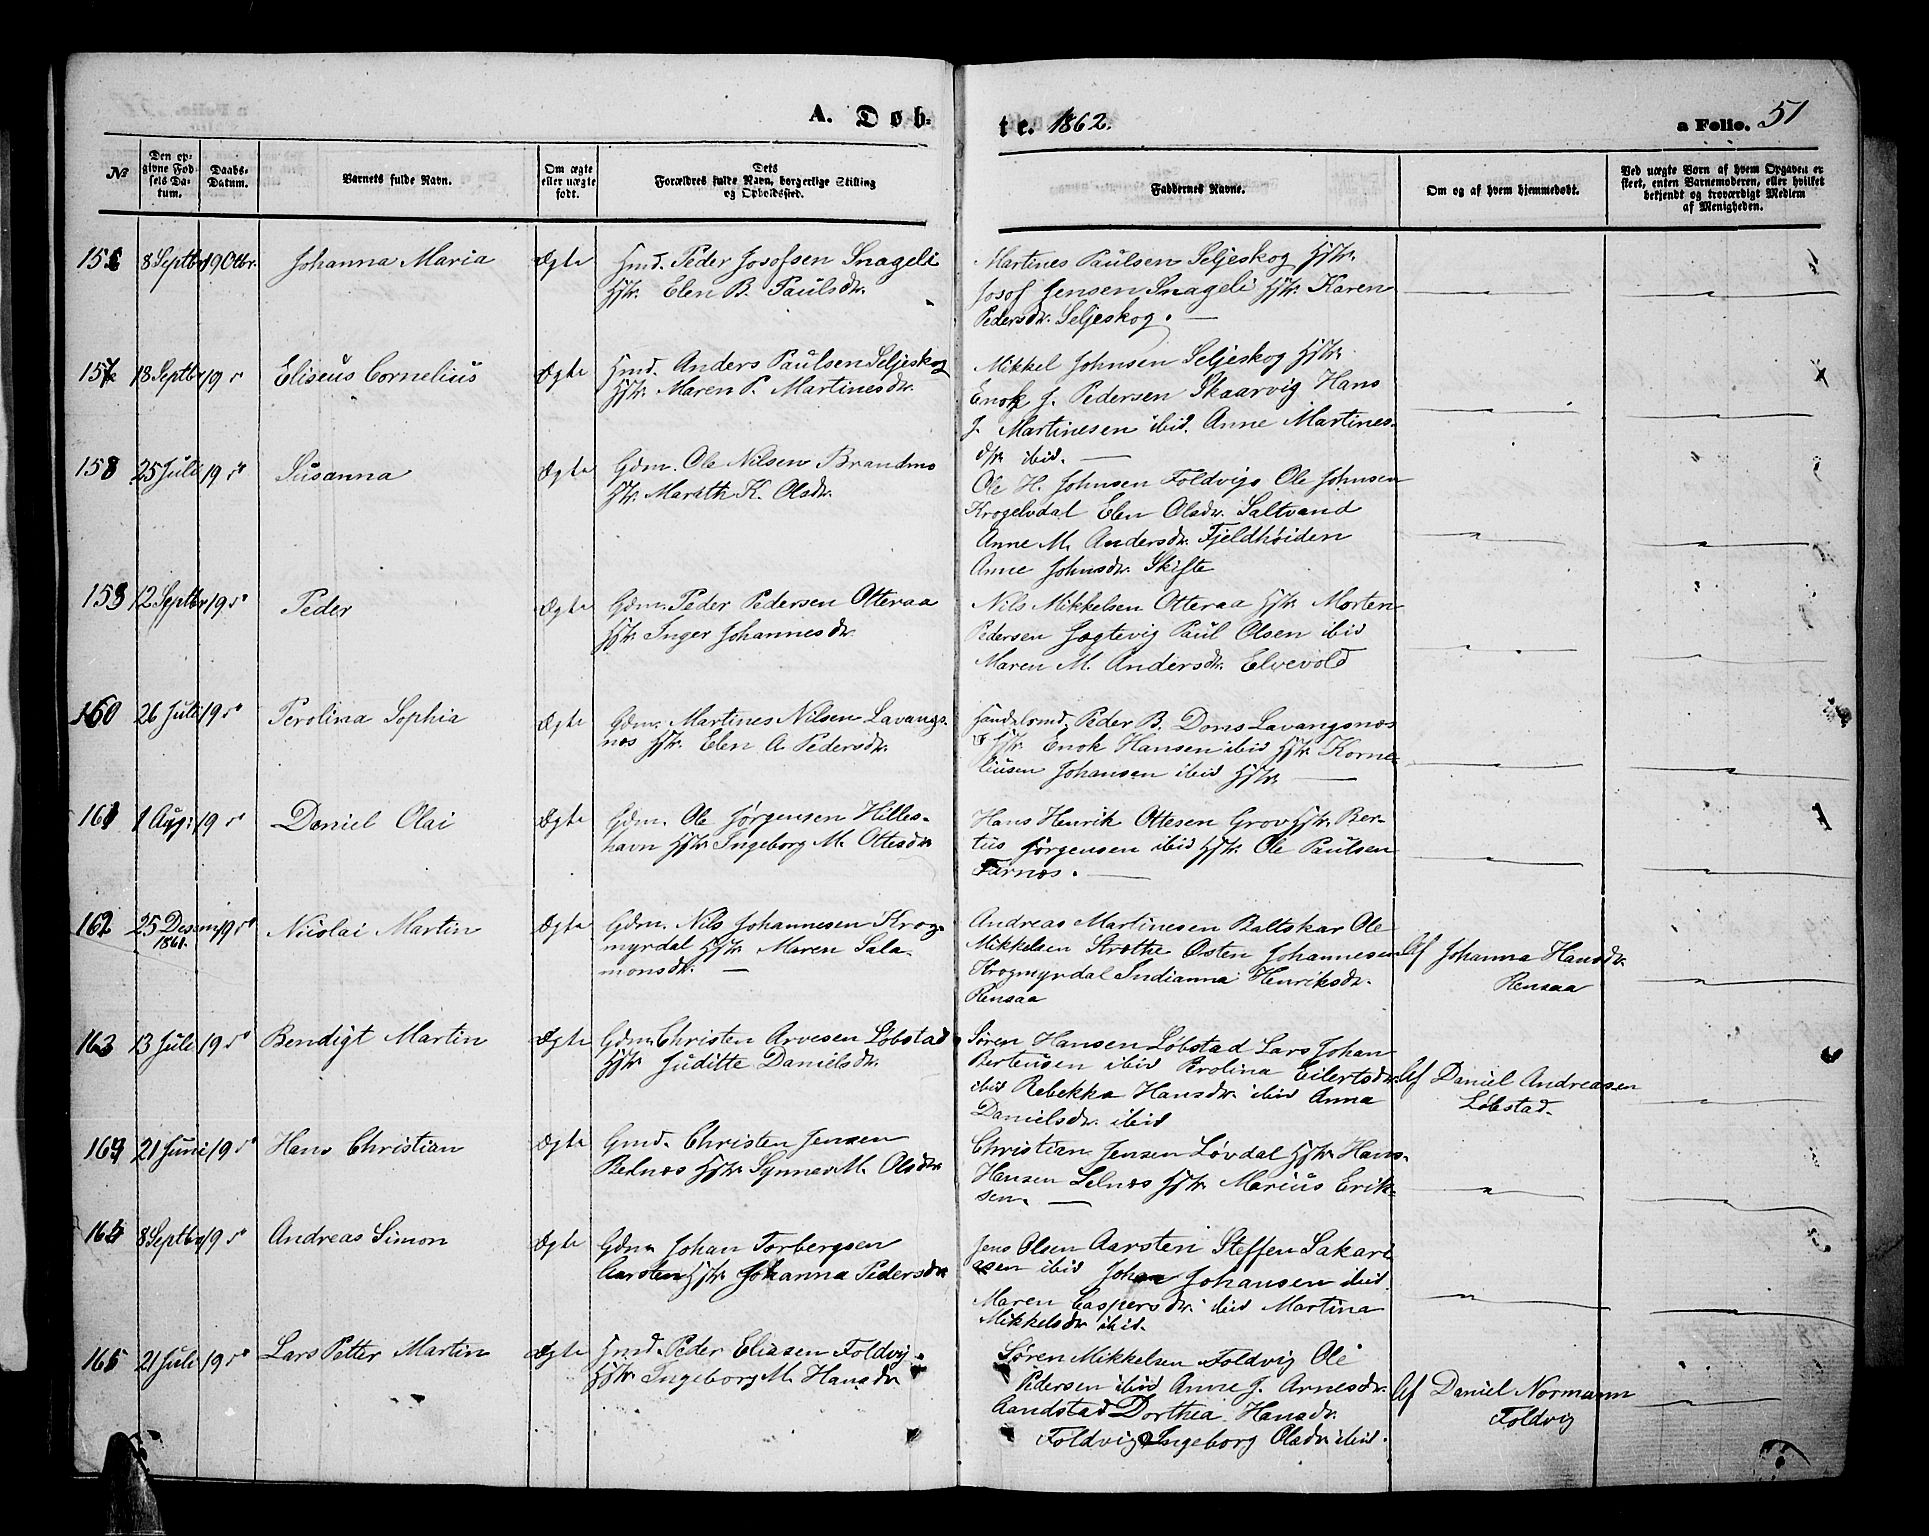 A. Døb-
te. 1862.
a Folio. 51
№
Den op-
givne Fød-
sels Da-
tum.
Daabs-
Datum.
Barnets fulde Navn.
Om ægte
eller uægte
født.
Dets
Forældres fulde Navn, borgerlige Stilling
og Opholdssted.
Faddernes Navne.
Om og af hvem hjemmedøbt.
Ved uægte Børn af hvem Opgaven er
skeet, enten Barnemoderen, eller hvilket
bekjendt og troværdigt Medlem
af Menigheden.
8 Septbr 19 Octbr. Johanna Maria Ægte Hmd. Peder Josofsen Snageli
Hstr. Elen B. Paulsdr.
Martines Paulsen Seljeskog Hstr.
Josof Jensen Snageli Hstr. Karen
Pedersdr. Seljeskog.
157 18 Septbr 19 " Eliseus Cornelius Ægte Hmd. Anders Paulsen Seljeskog
Hstr. Maren P. Martinesdr.
Mikkel Johnsen Seljeskog Hstr.
Enok J. Pedersen Skaarvig Hans
J. Martinesen ibid. Anne Martines-
dtr ibid.
158 25 Juli 19 " Susanna Ægte Gdm. Ole Nilsen Brandmo
Hstr. Marath K. Olsdr.
Ole H. Johnsen Foldvig Ole Johnsen
Krogelvdal Elen Olsdr. Saltvand
Anne M. Andersdr. Fjeldhøiden
Anne Johnsdr. Skifte
159 12 Septbr 19 " Peder Ægte Gdm. Peder Pedersen Otteraa
Hstr Inger Johannesdr.
Nils Mikkelsen Otteraa Hstr Morten
Pedersen Jægtevig Paul Olsen ibid
Maren M. Andersdr. Elvevold
160 26 Juli 19 " Perolina Sophia Ægte Gdm. Martines Nilsen Lavangs-
næs Hstr. Elen A. Pedersdr.
Handelsmd. Peder B. Dons Lavangsnæs
& Hstr. Enok Hansen ibid Hstr Korne-
liusen Johansen ibid Hstr.
161 1 Aug: 19 " Daniel Olai Ægte Gdm. Ole Jørgensen Hilles-
havn Hstr Ingeborg M. Ottesdr
Hans Henrik Ottesen Grov Hstr. Ber-
tus Jørgensen ibid Hstr. Ole Paulsen
Tarnæs.
162 25 Desem 19 " Nicolai Martin Ægte Gdm. Nils Johannesen Krog-
1861.
myrdal Hstr. Maren Sala-
monsdr.
Andreas Martinesen Baltskar Ole
Mikkelsen Strothe Østen Johannesen
Krogmyrdal Indianna Henriksdr.
Rensaa
Af Johanna Hansdr.
Rensaa
163 13 Juli 19 " Bendigt Martin Ægte Gdm. Christen Arvesen Løbstad
Hstr. Juditte Danielsdr.
Søren Hansen Løbstad Lars Johan
Berteusen ibid Perolina Eilertsdr.
ibid Rebekka Hansdr. ibid Anna
Danielsdr. ibid
Af Daniel Andreasen
Løbstad.
164 21 Juni 19 " Hans Christian Ægte Gmd. Christen Jensen
Rednæs Hstr. Synnev M. Olsdr
Christian Jensen Løvdal Hstr. Hans
Hansen Selnæs Hstr Marius Erik-
sen.
8 Septbr 19 " Andreas Simon Ægte Gdm Johan Torbergsen
Aarsten Hstr Johanna Pedersdr
Jens Olsen Aarsten Steffen Sakari-
asen ibid Johan Johansen ibid
Maren Caspersdr. ibid Martina
Mikkelsdr ibid.
21 Juli 19 " Lars Petter Martin Ægte Hmd. Peder Eliasen Foldvig.
Hstr Ingeborg M. Hansdr
Søren Mikkelsen Foldvig Ole
Pedersen ibid Anne J. Arnesdr.
Aandstad Dorthea Hansdr.
Foldvig Ingeborg Olsdr ibid.
Af Daniel Normann
Foldvig